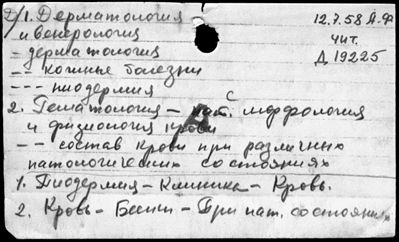 2/1. Дерматология
и венерология
- дерматология
-- кожные болезни
--- пиодермия
2. Гематология - пат. морфология
и физиология крови
-- состав крови при различных
патологических состояниях
1. Пиодермия - Клиника - Кровь.
2. Кровь - Белки - При пат. состояниях
12.7.58 А.Ф
чит.
Д 19225
А
С